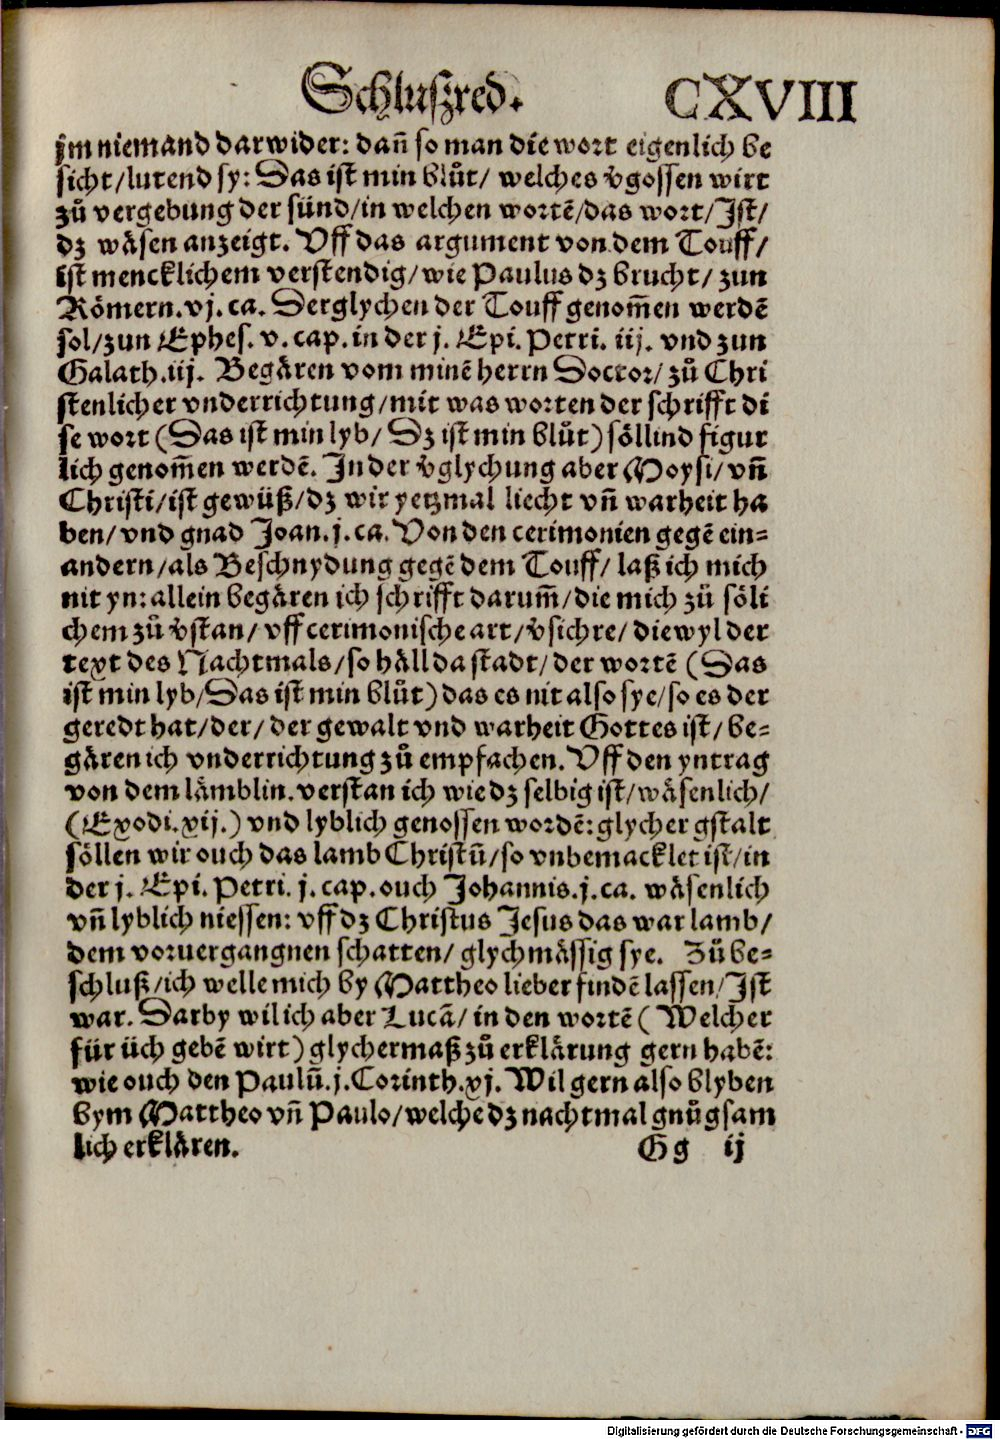 Schluſzred. CXVIII
jm niemand darwider: dañ ſo man die wort eigenlich be
ſicht/lutend ſy: Das iſt min blůt/ welches v̄goſſen wirt
zů vergebung der ſünd/in welchen wortē/das wort/Iſt/
dz wäſen anzeigt. Vff das argument von dem Touff/
iſt mencklichem verſtendig/wie Paulus dz brucht/ zun
Römern.vj. ca. Derglychen der Touff genom̄en werdē
ſol/zun Epheſ. v. cap. in der j. Epi. Petri. iij. vnd zun
Galath.iij. Begären vom minē herrn Doctor/ zů Chri
ſtenlicher vnderrichtung/mit was worten der ſchrifft di
ſe wort (Das iſt min lyb/ Dz iſt min blůt) ſöllind figur
lich genom̄en werdē. In der v̄glychung aber Moyſi/ vñ
Chriſti/iſt gewüß/dz wir yetzmal liecht vñ warheit ha
ben/ vnd gnad Joan. j. ca. Von den cerimonien gegē ein⸗
andern/als Beſchnydung gegē dem Touff/ laß ich mich
nit yn: allein begären ich ſchrifft darum̄/die mich zů ſöli
chem zů v̄ſtan/ vff cerimoniſche art/v̄ſichre/ diewyl der
text des Nachtmals/ſo häll da ſtadt/ der wortē (Das
iſt min lyb/Das iſt min blůt) das es nit alſo ſye/ſo es der
geredt hat/der/ der gewalt vnd warheit Gottes iſt/ be⸗
gären ich vnderrichtung zů empfachen. Vff den yntrag
von dem lämblin. verſtan ich wie dz ſelbig iſt/wäſenlich/
(Exodi.xij.) vnd lyblich genoſſen wordē: glycher gſtalt
ſöllen wir ouch das lamb Chriſtū/ſo vnbemacklet iſt/in
der j. Epi. Petri. j. cap. ouch Johannis. j. ca. wäſenlich
vñ lyblich nieſſen: vff dz Chriſtus Jeſus das war lamb/
dem voruergangnen ſchatten/ glychmäſſig ſye. Zů be⸗
ſchluß/ich welle mich by Mattheo lieber findē laſſen/Iſt
war. Darby wil ich aber Lucā/ in den wortē ( Welcher
für üch gebē wirt) glychermaß zů erklärung gern habē:
wie ouch den Paulū. j. Corinth.xj. Wil gern alſo blyben
bym Mattheo vñ Paulo/welche dz nachtmal gnůgſam
lich erklären. Gg ij
Digitalisierung gefördert durch die Deutsche Forschungsgemeinschaft - DFG